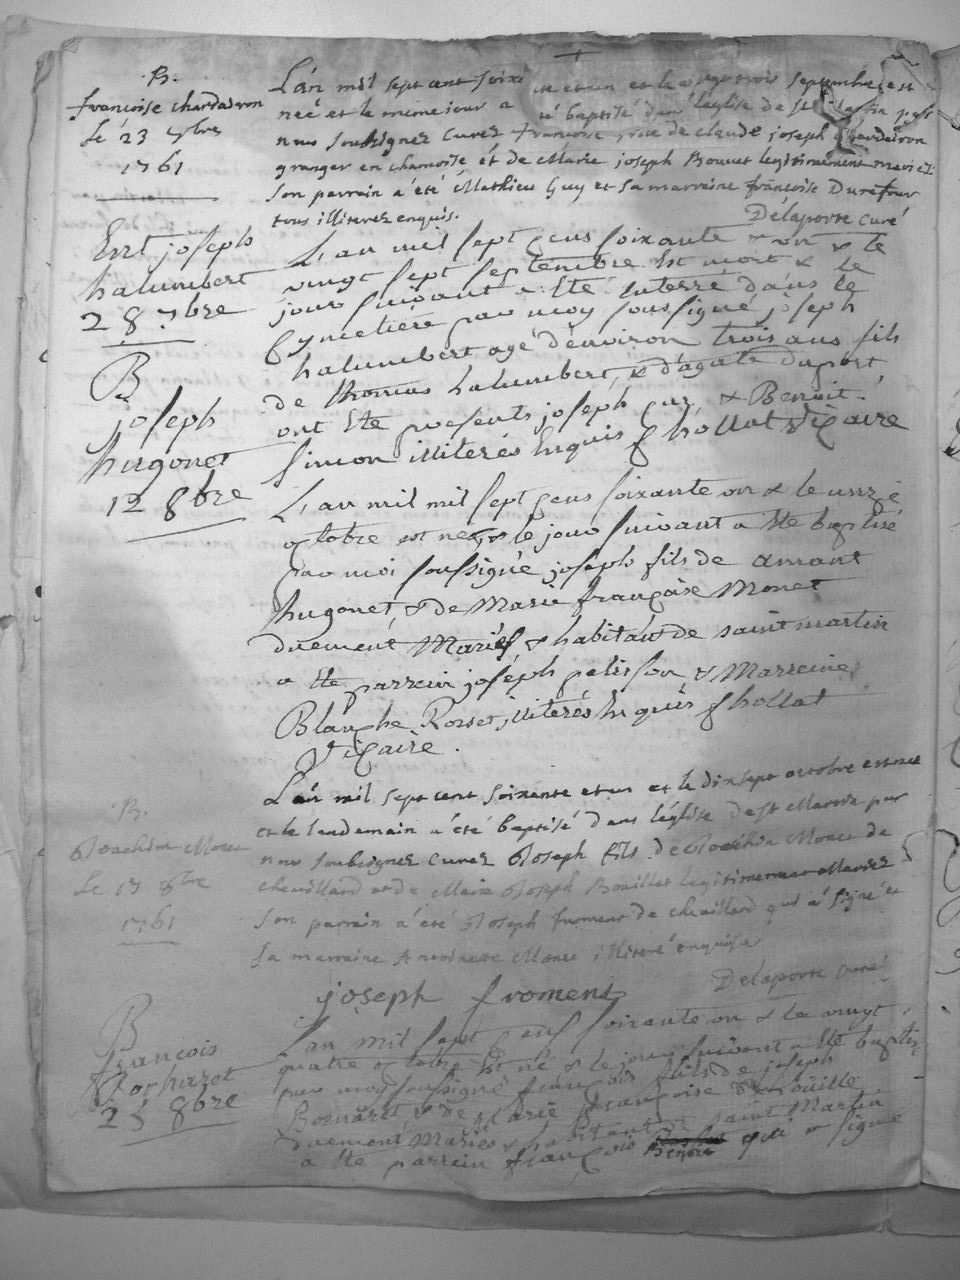 B.
françoise chardeiron
Le 23 7bre
1761
L'an mil sept cent soixante et un et le vingt trois septembre est
neé et le meme jour a été baptisé dans l'église de st
nous soubsignez curez francoise fille de claude joseph chardeiron
granger en chamoise et de Marie joseph Bouvet legitimement mariez
son parrain a été Mathieu Guy et sa marraine françoise Durefour
tous illiterez enquis. Delaporte curé
Ent joseph
halumbert
28 7bre
L'an mil sept cens soixante & un & le
vingt sept septembre Est mort & le
jour suivant a Eté Enterré dans le
Cymetière par moy soussigné joseph
halumbert agé d'environ trois ans fils
de thomas halumbert, & d'agate duport
ont Eté presents joseph guy & Benoit
simon illiterés Enquis Chollat Vicaire
B
joseph
hugonet
12 8bre
L'an mil mil sept cens soixante un & le unze
octobre est ne & le jour suivant a Eté baptisé
par moi soussigné joseph fils de amant
hugonet, & de Marie françoise Monet
duement Mariés & habitans de saint martin
a Eté parrein joséph pelisson & Marreine
Blanche Rosset, illiterés Enquis Chollat
Vicaire.
B.
Joachim Monee
Le 17 8bre
1761
L'an mil sept cent soixante et un et le dix sept octobre est née
et le lendemain a été baptisé dans l'église de st Martin par
nous soubsignez curez Joseph fils de Joachim Monee de
chevillard et de Marie Joseph Bouillet legitimement Mariez
son parrain a été Joseph frument de chevillard qui a signé et
sa marraine Antoinette Monee illiteré enquise
Delaporte curé
joseph froment
B
francois
2 8bre
L'an mil sept cens soixante un & le vingt
quatre octobre Est né & le jour suivant a Eté baptisé
par moy soussigné françois fils de joseph
& de Marie françoise
duement Mariés & habitans de saint Martin
a Eté parrein françois Benoit qui a signé